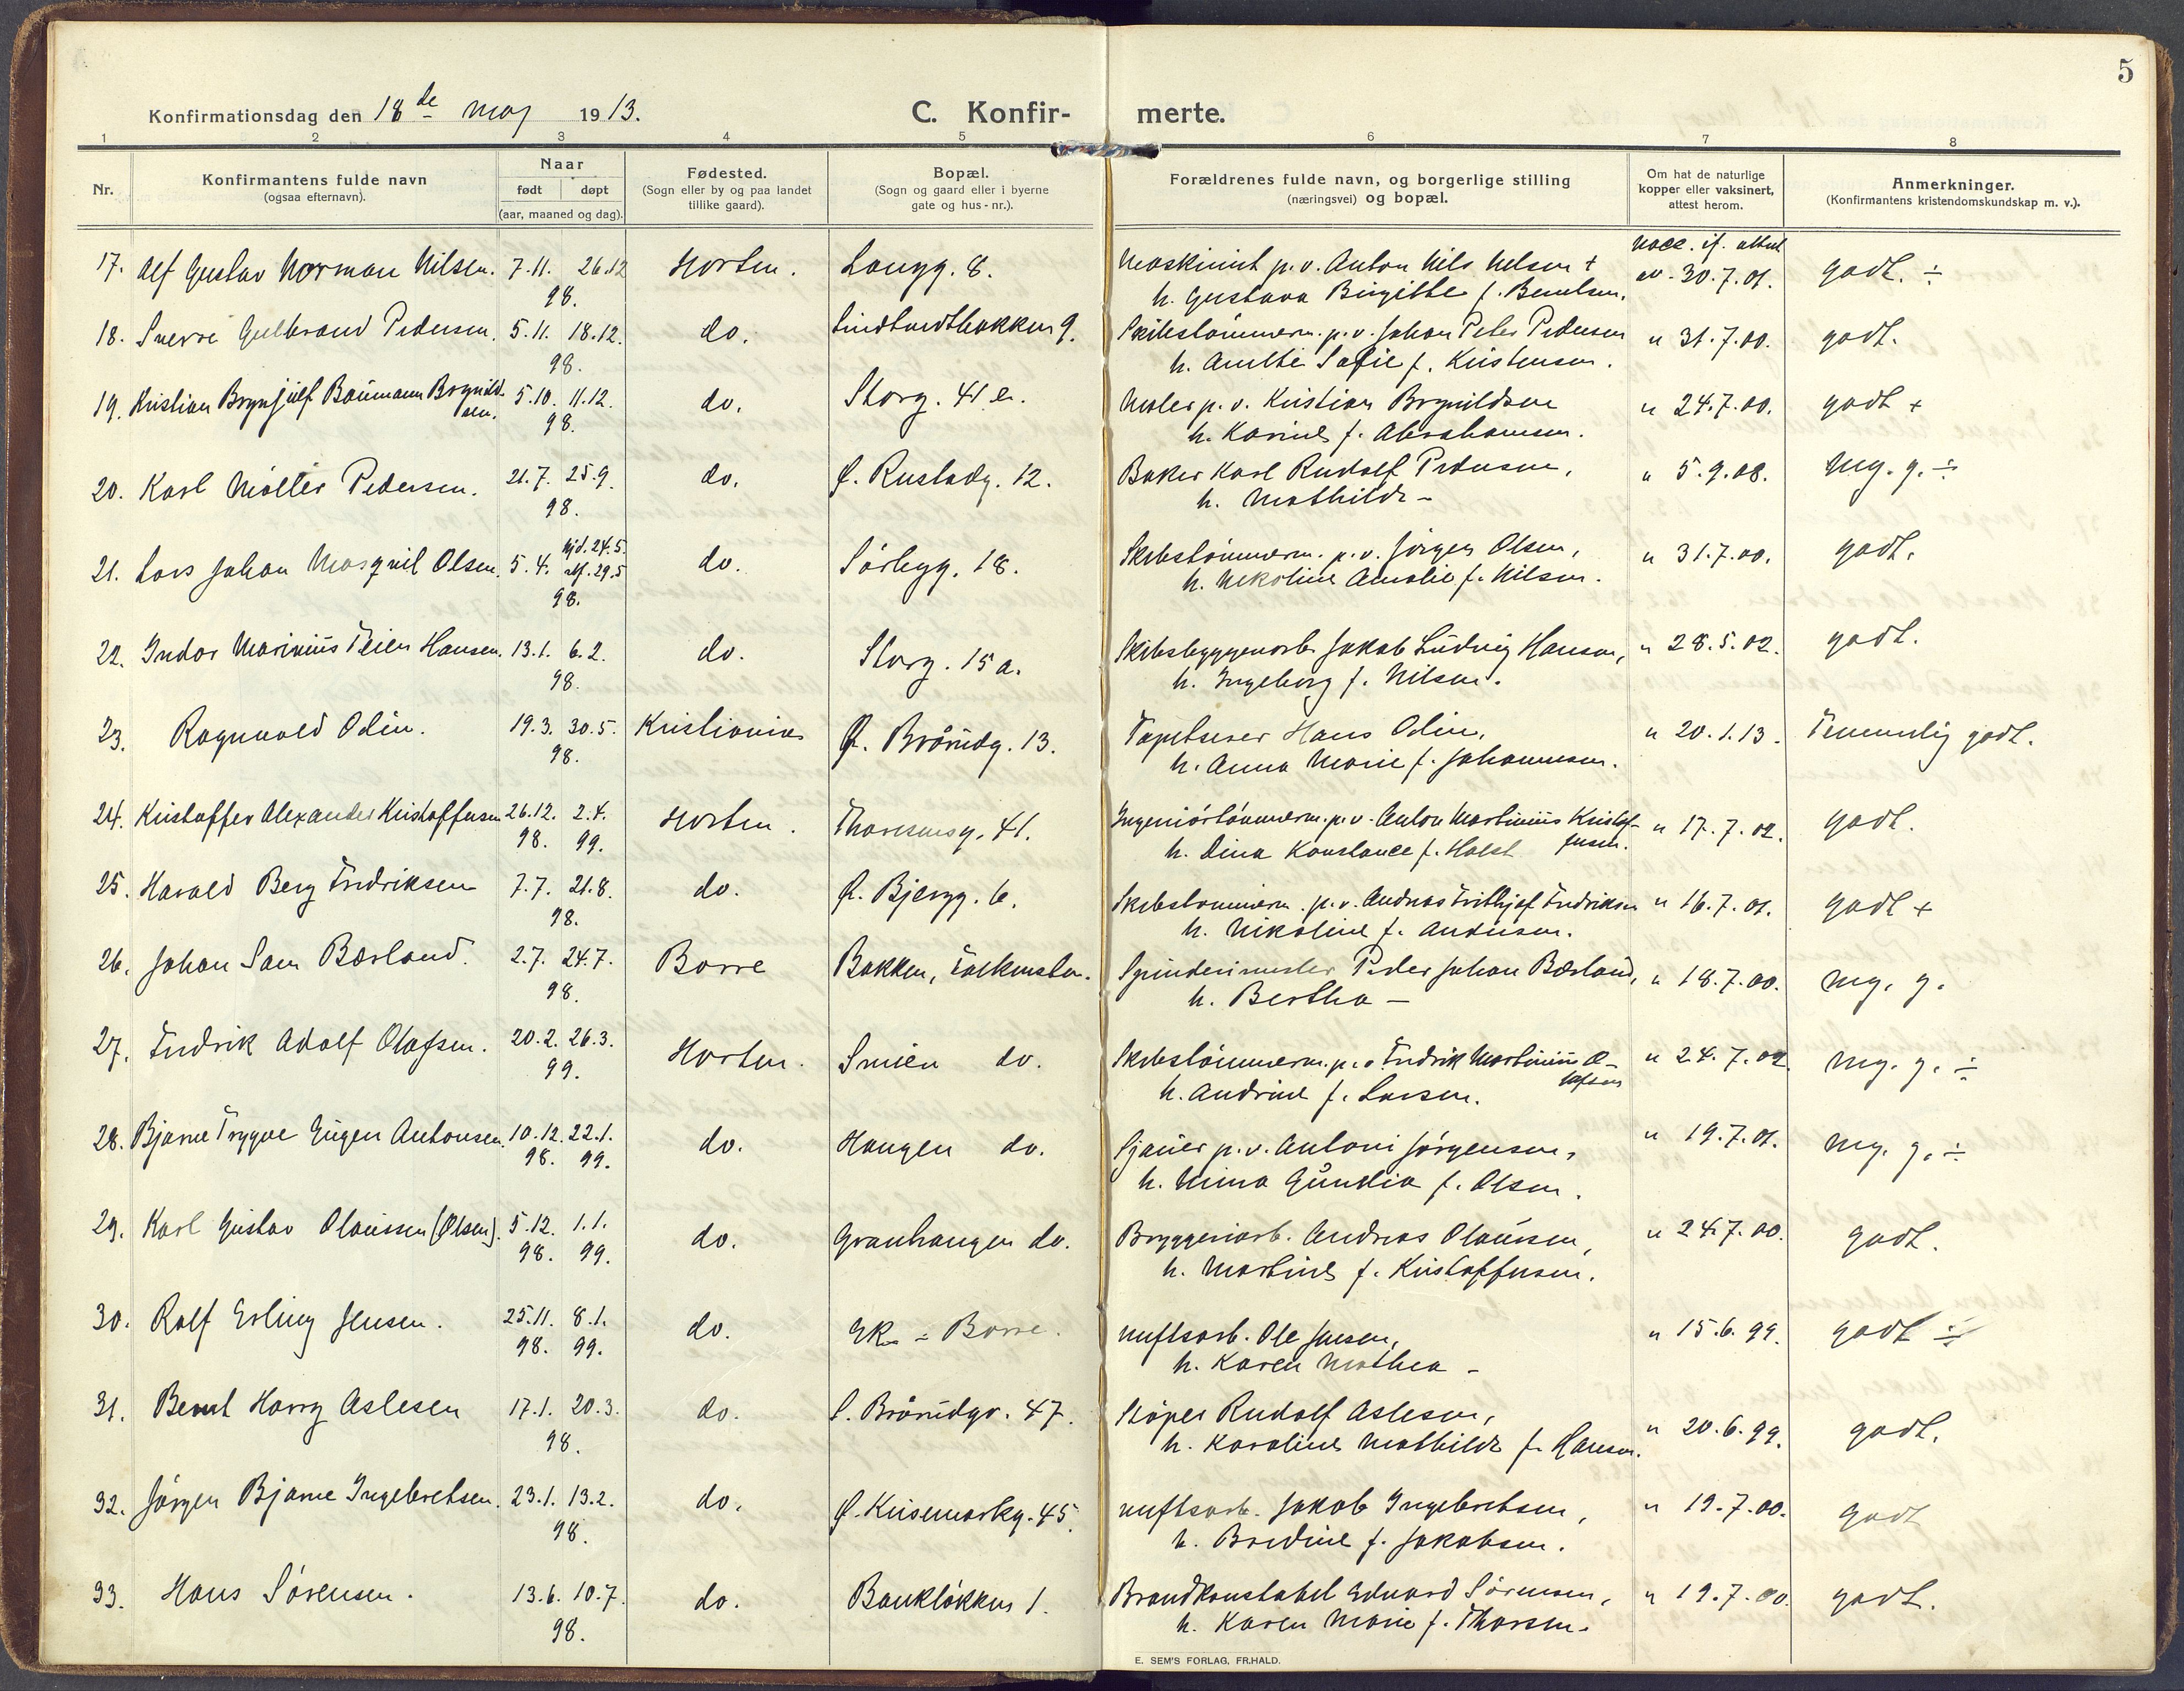 5
Konfirmationsdag den 18de maj 1913.
C. Konfir- merte.
1 2 3 4 5 6 7 8
Nr.
Konfirmantens fulde navn
(ogsaa efternavn).
Naar
født døpt
(aar, maaned og dag).
Fødested.
(Sogn eller by og paa landet
tillike gaard).
Bopæl.
(Sogn og gaard eller i byerne
gate og hus-nr.).
Forældrenes fulde navn, og borgerlige stilling
(næringsvei) og bopæl.
Om hat de naturlige
kopper eller vaksinert,
attest herom.
Anmerkninger.
(Konfirmantens kristendomskundskap m. v.).
17. Alf Gustav Norman Nilsen. 7.11. 26.12 Horten. Langg. 8. Maskinist p.v. Anton Nils Nilsen + vacc. if. attest
98. h. Gustava Birgitte f. Berntsen. av 30.7.01. godt. ÷
18. Sverre Gulbrand Pedersen. 5.11. 18.12. do. 9. Skibstømmerm. p.v. Johan Peter Pedersen " 31.7.00. godt.
98. h. Anethe Sofie f. Kristensen.
19. Kristian Brynjulf Baumann Brynild- 5.10. 11.12. do. Storg. 41 e. Maler p.v. Kristian Brynildsen " 24.7.00. godt +
sen. 98. h. Karine f. Abrahamsen.
20. Karl Møller Pedersen. 21.7. 25.9. do. Ø. Rustadg. 12. Baker Karl Rudolf Pedersen, " 5.9.08. mg. g. ÷
98. h. Mathilde –
21. Lars Johan Olsen. 5.4. hjd. 24.5. do. Sørbyg. 18. Skibstømmerm. p.v. Jørgen Olsen, " 31.7.00. godt.
29.5
98. h. Nikoline Amalie f. Nilsen.
22. Indar Marinius Teier Hansen. 13.1. 6.2. do. Storg. 15 a. Skibsbyggerarb. Jakob Ludvig Hansen, " 28.5.02. godt.
98. h. Ingeborg f. Nilsen.
23. Ragnvald Odin. 19.3. 30.5. Kristiania Ø. Braarudg. 13. Tapetserer Hans Odin, " 20.1.13. Temmelig godt.
98. h. Anna Marie f. Johannesen.
24. Kristoffer Alexander Kristoffersen 26.12. 2.4. Horten. Thoresensg. 41. Ingeniørtømmerm. p.v. Anton Martinius Kristof- " 17.7.02. godt.
98. 99. h. Dina Konstance f. Holst fersen.
25. Harald Berg Fredriksen 7.7. 21.8. do. Ø. Bjergg. 6. Skibstømmerm. p.v. Andreas Frithjof Fredriksen " 16.7.01. godt +
98. h. Nikoline f. Andersen.
26. Johan Sam Bærland. 2.7. 24.7. Borre Bakken, Falkensten. Spinderimester Peder Johan Bærland, " 18.7.00. mg. g.
98. h. Bertha –
27. Fredrik Adolf Olafsen. 20.2. 26.3. Horten. Smien do. Skibstømmerm. p.v. Fredrik Martinius O- " 24.7.02. mg. g. ÷
99. h. Andrine f. Larsen. lafsen
28. Bjarne Trygve Eugen Antonsen. 10.12. 22.1. do. Haugen do. Sjauer p.v. Antoni Jørgensen, " 19.7.01. mg. g. ÷
98. 99. h. Mina Gundia f. Olsen.
29. Karl Gustav Olaussen (Olsen). 5.12. 1.1. do. Granhaugen do. Bryggeriarb. Andreas Olaussen, " 24.7.00. godt.
98. 99. h. Martine f. Kristoffersen.
30. Rolf Erling Jensen. 25.11. 8.1. do. Ek – Borre. Verftsarb. Ole Jensen, " 15.6.99. godt ÷
98. 99. h. Karen Mathea –
31. Bernt Harry Aslesen 17.1. 20.3. do. S. Braarudgr. 47. Støper Rudolf Aslesen, " 20.6.99. godt.
98. h. Karoline Mathilde f. Hansen.
32. Jørgen Bjarne Ingebretsen. 23.1. 13.2. do. Ø. Keisemarkg. 45. Verftsarb. Jakob Ingebretsen, " 19.7.00. godt
98. h. Bredine f. Jakobsen.
33. Hans Sørensen. 13.6. 10.7. do. Bankløkken 1. Brandkonstabel Edvard Sørensen, " 19.7.00. godt.
98. h. Karen Marie f. Thorsen.
E. SEM'S FORLAG, FR.HALD.